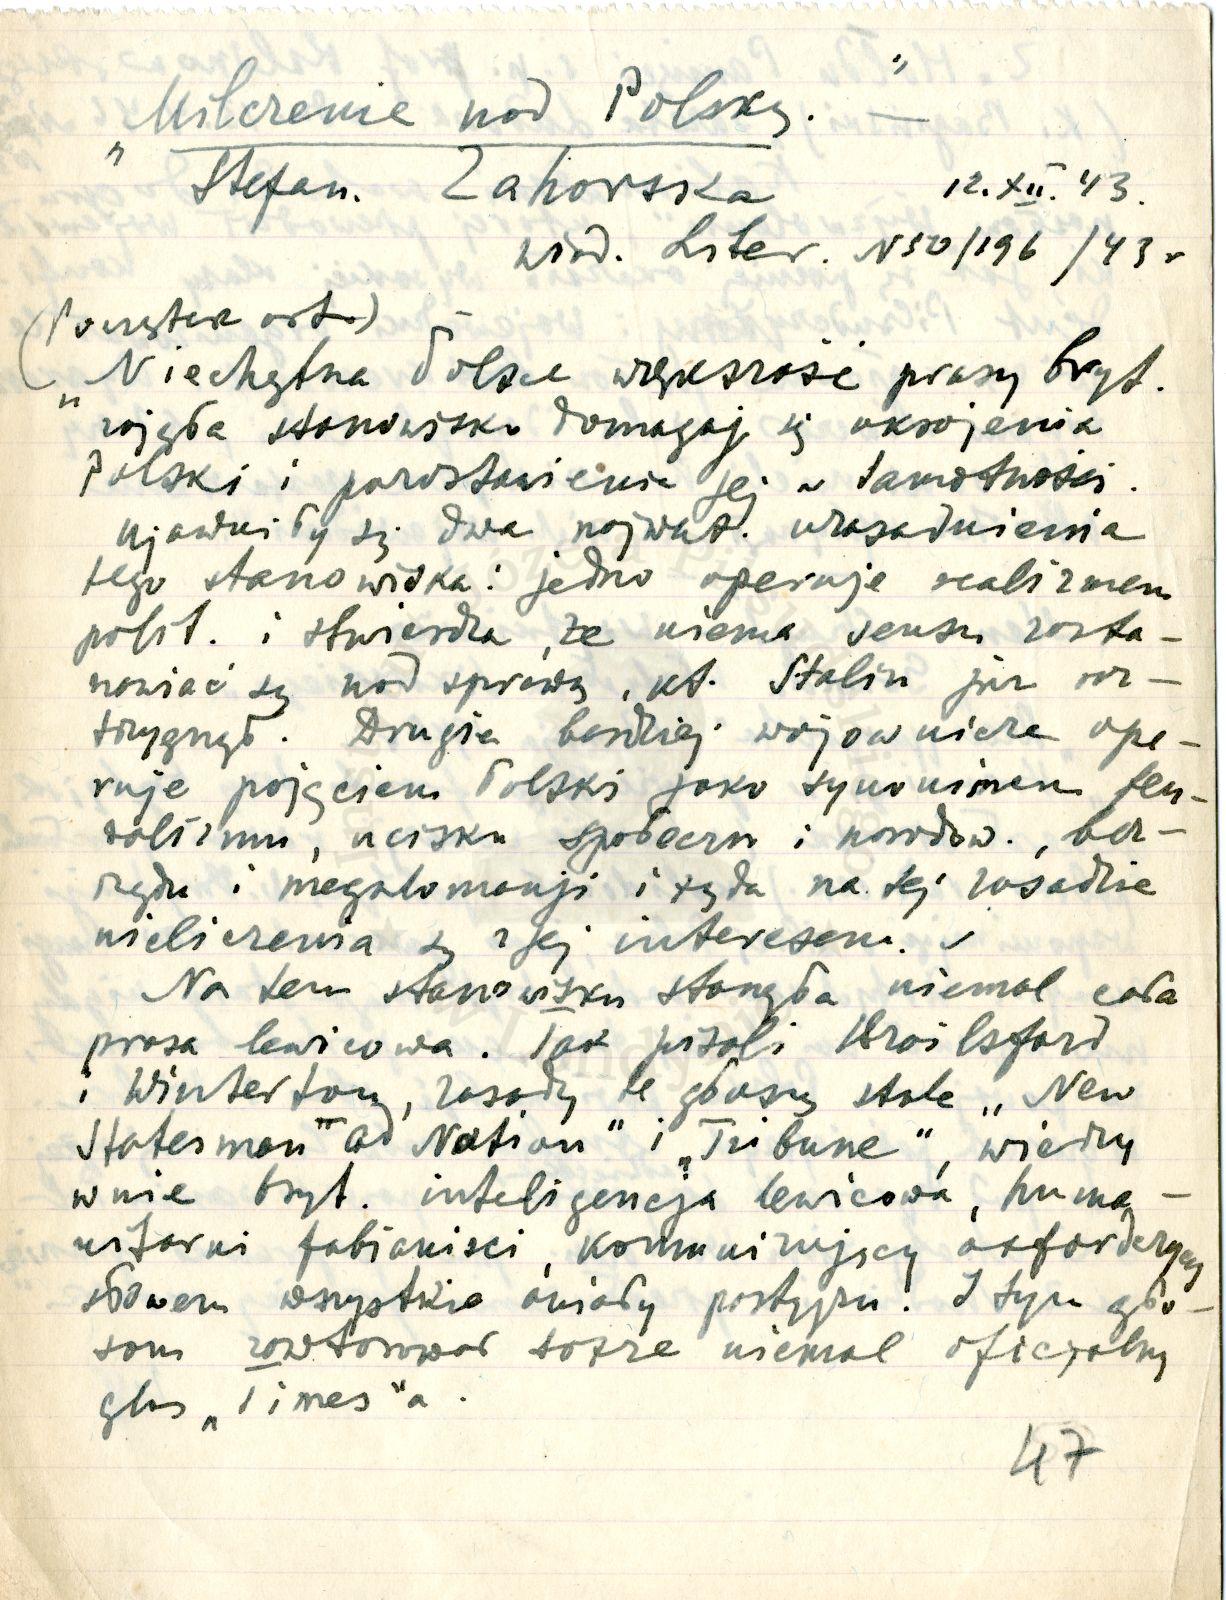 „Milczenie nad Polską.” —
Stefan. Zahorska 12.XII.43.
Wiad. Liter. N50/196/43 r
(Początek art.)
„Niechętna Polsce większość prasy bryt.
zajęła stanowisko domagaj. się okrojenia
Polski i pozostawienia jej w samotności.
Ujawniły się dwa najważ. uzasadnienia
tego stanowiska: jedno operuje realizmem
polit. i stwierdza, że niema sensu zasta-
nawiać się nad sprawą, kt. Stalin już roz-
strzygnął. Drugie bardziej wojownicze ope-
ruje pojęciem Polski jako synonimem feu-
dalizmu, ucisku społeczn i narodow., bez-
rządu i megalomanji i żąda na tej zasadzie
nieliczenia się z jej interesem.
Na tem stanowisku stanęła niemal cała
prasa lewicowa. Tak pisali Brailsford
i Winterton, zasady te głoszą stale „New
Statesman and Nation” i „Tribune”, wierzy
w nie bryt. inteligencja lewicowa, huma-
nitarni fabianiści, komunizujący oxfordczycy
słowem wszystkie anioły postępu. I tym gło-
som zawtórował także niemal oficjalny
głos „Times”a.
47